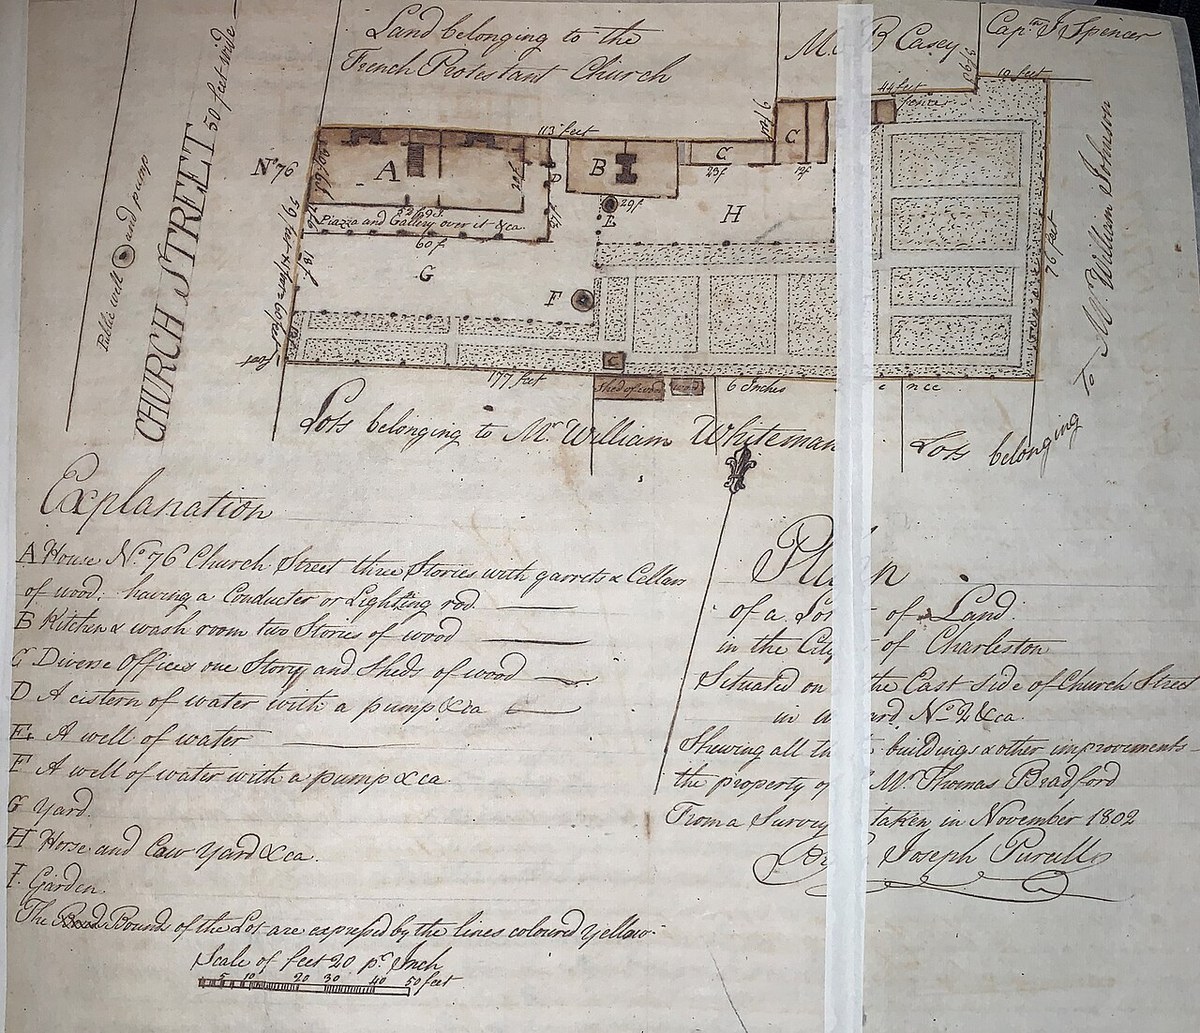 Land belonging to the
French Protestant Church
B Casey
Capt. J Spencer
10 feet
44 feet
fence
113 feet
CHURCH STREET 50 feet wide
Public well and pump
No. 76
A
B
C
C
C
D
E
F
G
H
29f
23f
12f
Piazza and Gallery over it &ca.
60 f
76 feet
177 feet
6 Inches
Lots belonging to Mr. William Whiteman
Lots belonging to Mr. William Johnson
Explanation
A House No. 76 Church Street three Stories with garrets & Cellars
of wood; having a Conductor or Lighting rod
B Kitchen & wash room two Stories of wood
C Diverse Offices one Story and Sheds of wood
D A cistern of water with a pump &ca
E. A well of water
F A well of water with a pump & ca.
G Yard.
H Horse and Cow Yard &ca.
I. Garden.
The Bounds of the Lot are expressed by the lines coloured Yellow.
Scale of feet 20 pr. Inch
5 10 20 30 40 50 feet
Plan
of a Lot of Land
in the City of Charleston
Situated on the East side of Church Street
in ward No. 2 &ca.
Shewing all the buildings & other improvements
the property of Mr. Thomas Bradford
From a Survey taken in November 1802
By Joseph Purcell